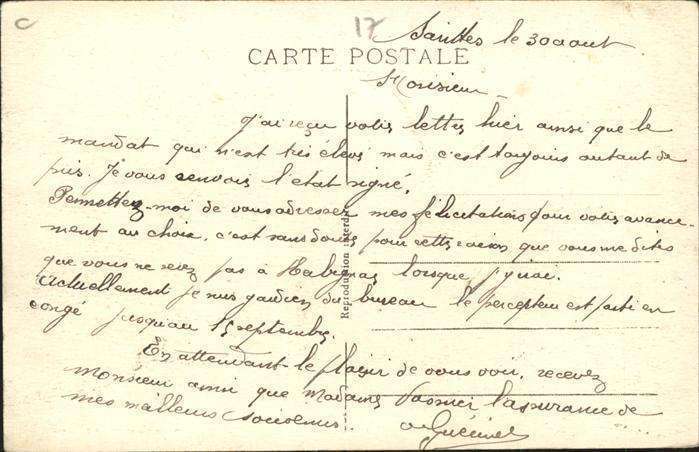 C
17
Saintes le 30 aout
CARTE POSTALE
Monsieur
J'ai reçu votre lettre hier ainsi que le
mandat qui n'est très élevé mais c'est toujours autant de
pris. Je vous renvois l'état signé.
Permettez-moi de vous adresser mes félicitations pour votre avance-
ment au choix, c'est sans doute pour cette raison que vous me dites
que vous ne serez pas à lorsque j'y irai.
Actuellement je suis gardien du bureau le percepteur est parti en
congé jusqu'au 15 septembre.
En attendant le plaisir de vous voir, recevez
Monsieur ainsi que Madame l'assurance de
mes meilleurs souvenirs.
Reproduction interdite